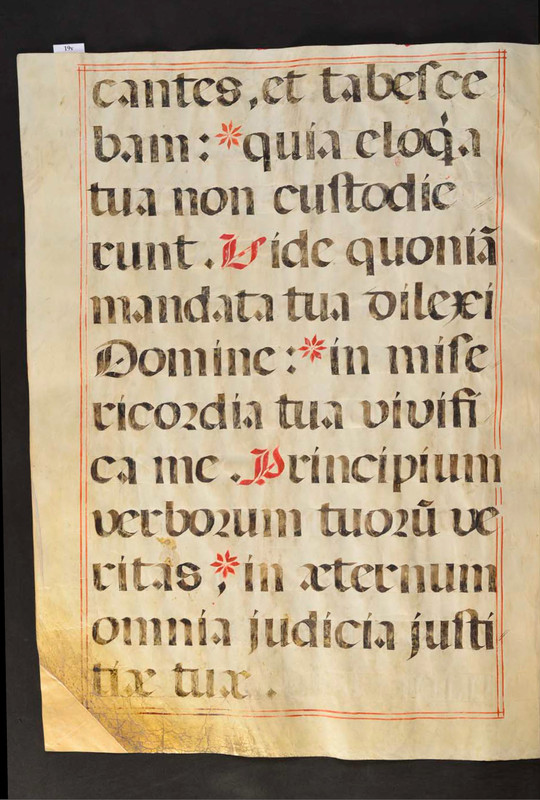 19v
cantes, et tabeſce
bam : *quia eloq̇a
tua non cuſtodie
runt. Vide quoniã
mandata tua dilexi
Domine : *in miſe
ricoꝛdia tua vivifi
ca me. Principium
verboꝛum tuoꝛũ ve
ritas ; *in æternum
omnia judicia juſti
tiæ tuæ.